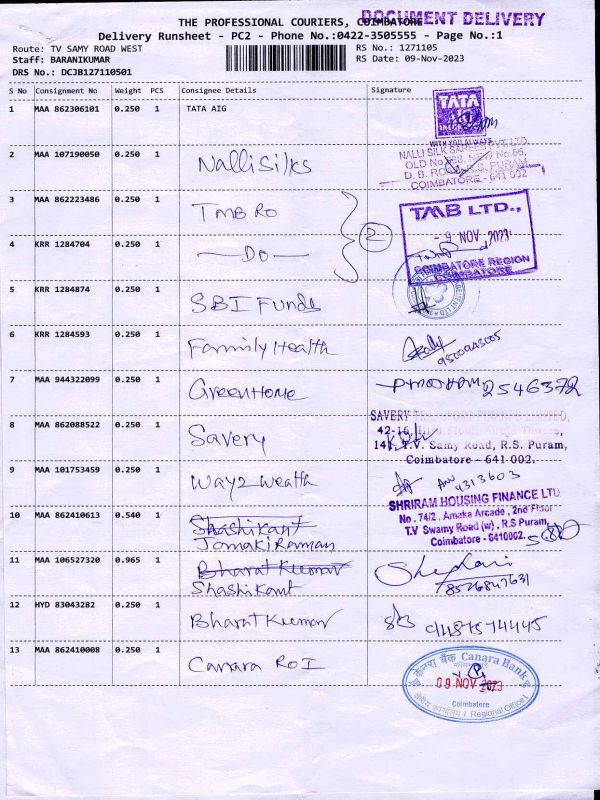 THE PROFESSIONAL COURIERS, COIMBATORE
DOCUMENT DELIVERY
Delivery Runsheet - PC2 - Phone No.:0422-3505555 - Page No.:1
Route: TV SAMY ROAD WEST
RS No.: 1271105
Staff: BARANIKUMAR
RS Date: 09-Nov-2023
DRS No.: DCJB127110501
S No Consignment No Weight PCS Consignee Details Signature
1 MAA 862306101 0.250 1 TATA AIG
TATA
WITH YOU ALWAYS
2 MAA 107190050 0.250 1 Nalli Silks
NALLI SILK SAREES PVT LTD.
D. B. ROAD, R.S. PURAM,
COIMBATORE - 641 002
3 MAA 862223486 0.250 1 TMB RO
TMB LTD.,
- 9 NOV 2023
4 KRR 1284704 0.250 1 — DO —
2
COIMBATORE REGION
COIMBATORE
5 KRR 1284874 0.250 1 SBI Funds
6 KRR 1284593 0.250 1 Family Health
7 MAA 944322099 0.250 1 GreenHome
2546372
8 MAA 862088522 0.250 1 Savery
SAVERY
T.V. Samy Road, R.S. Puram,
Coimbatore - 641 002.
9 MAA 101753459 0.250 1 Way2 Wealth
4313603
SHRIRAM HOUSING FINANCE LTD
No. 74/2, Amaka Arcade, 2nd Floor
T.V Swamy Road (w), R.S Puram,
Coimbatore - 6410002.
10 MAA 862410613 0.540 1 Shashikant
JanakiRaman
11 MAA 106527320 0.965 1 Bharat Kumar
Shashikant
8526847631
12 HYD 83043282 0.250 1 Bharat Kumar
13 MAA 862410008 0.250 1 Canara RO I
केनरा बैंक Canara Bank
09 NOV 2023
Coimbatore
क्षेत्रीय कार्यालय I Regional Office I